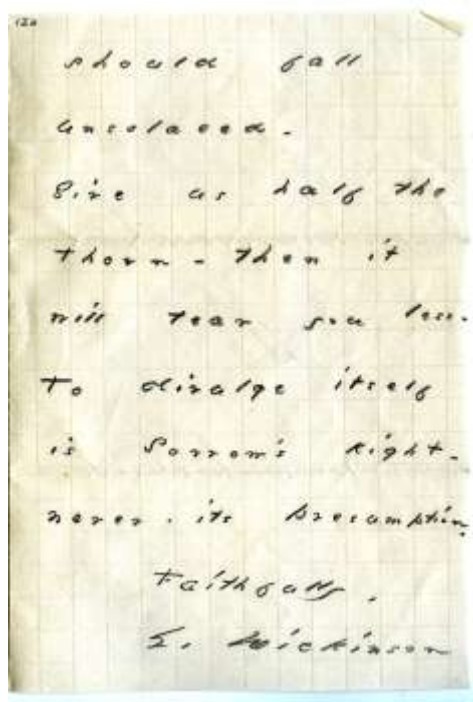 120
should fall
unsolaced.
Give us half the
thorn - then it
will tear you less.
To divulge itself
is Sorrow's Right -
never - its presumption.
Faithfully,
E. Dickinson